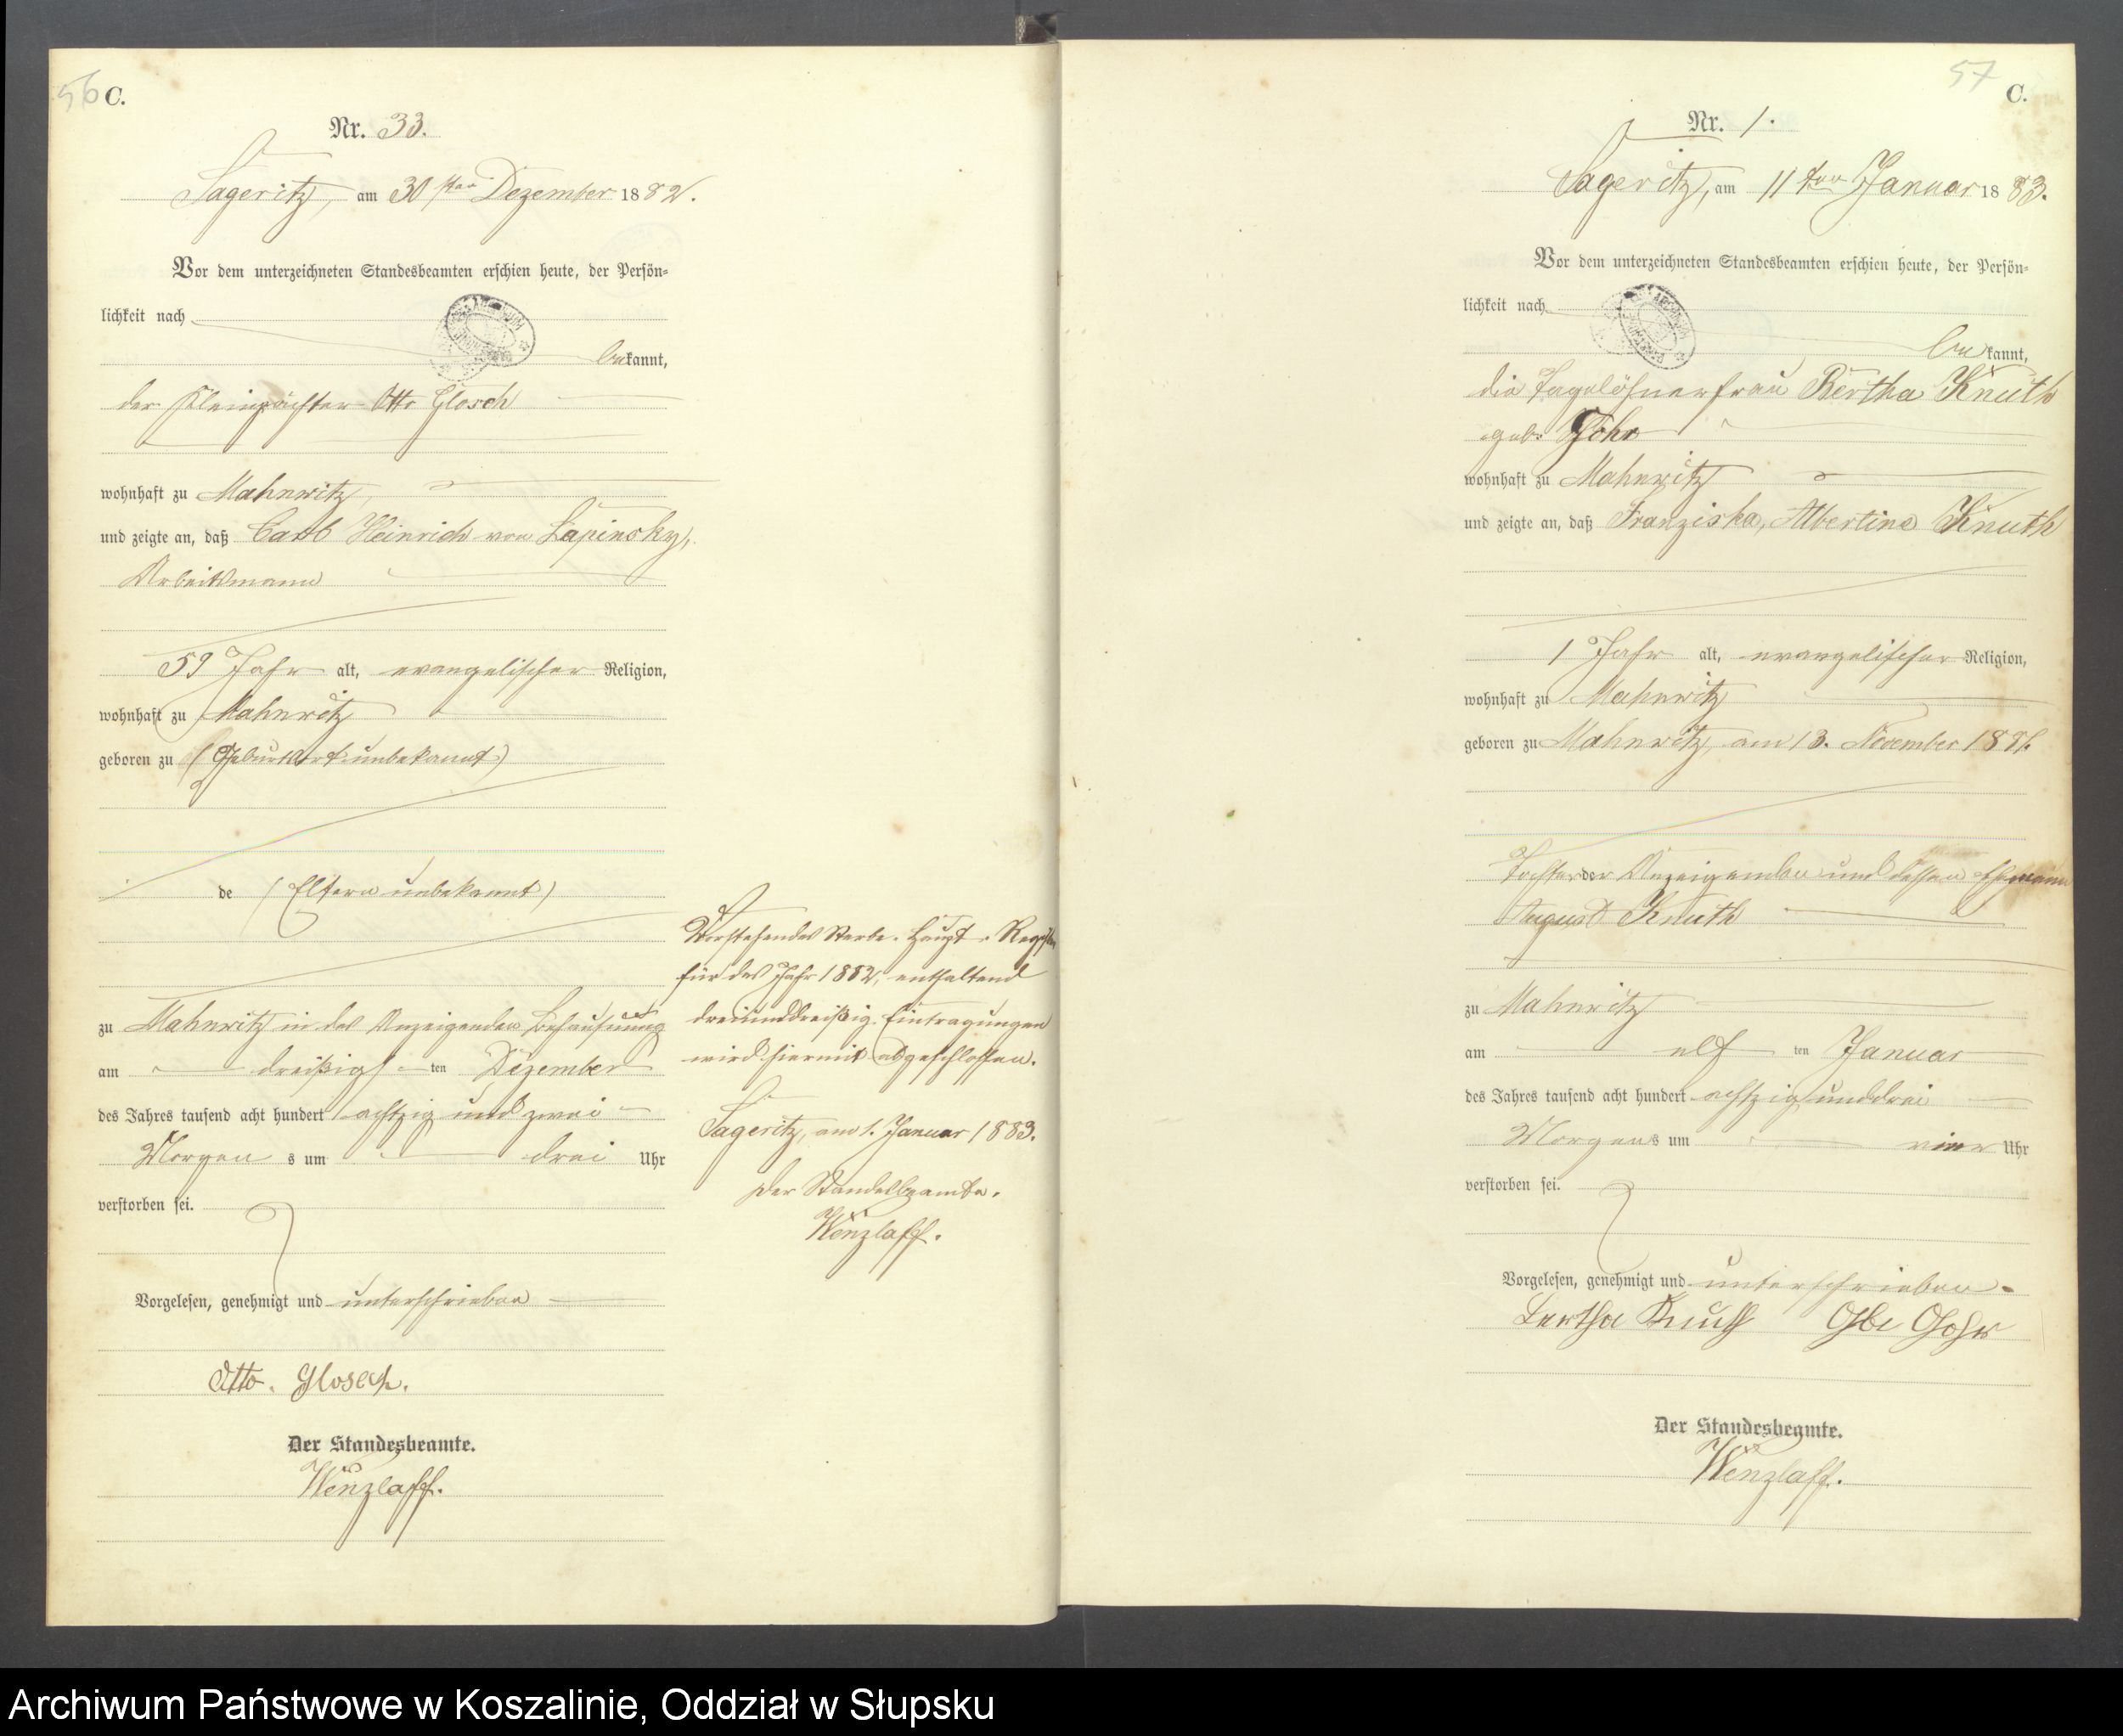 56 C.
Nr. 33.
Sageritz, am 30ten Dezember 1882.
Vor dem unterzeichneten Standesbeamten erschien heute, der Persön-
lichkeit nach
bekannt,
der Kleinpächter Otto Glosch
wohnhaft zu Mahnwitz,
und zeigte an, daß Carl Heinrich von Lapinsky,
Arbeitsmann
59 Jahr alt, evangelischer Religion,
wohnhaft zu Mahnwitz
geboren zu (Geburtsort unbekannt)
de (Eltern unbekannt)
zu Mahnwitz in des Anzeigenden Behausung
am dreißigsten Dezember
des Jahres tausend acht hundert achtzig und zwei
Morgens um drei Uhr
verstorben sei.
Vorgelesen, genehmigt und unterschrieben
Otto. Glosch.
Der Standesbeamte.
Wenzlaff.
Vorstehendes Sterbe-Haupt-Register
für das Jahr 1882, enthaltend
dreiunddreißig Eintragungen
wird hiermit abgeschlossen.
Sageritz, am 1. Januar 1883.
Der Standesbeamte.
Wenzlaff.
57 C.
Nr. 1.
Sageritz, am 11ten Januar 1883.
Vor dem unterzeichneten Standesbeamten erschien heute, der Persön-
lichkeit nach
bekannt,
die Tagelöhnerfrau Bertha Knuth
geb. Gohr
wohnhaft zu Mahnwitz
und zeigte an, daß Franziska, Albertine Knuth
1 Jahr alt, evangelischer Religion,
wohnhaft zu Mahnwitz
geboren zu Mahnwitz, am 13. November 1881.
Tochter der Anzeigenden und dessen Ehemann
August Knuth
zu Mahnwitz
am elften Januar
des Jahres tausend acht hundert achtzig und drei
Morgens um vier Uhr
verstorben sei.
Vorgelesen, genehmigt und unterschrieben.
Bertha Knuth Gbe Gohr
Der Standesbeamte.
Wenzlaff.
Archiwum Państwowe w Koszalinie, Oddział w Słupsku